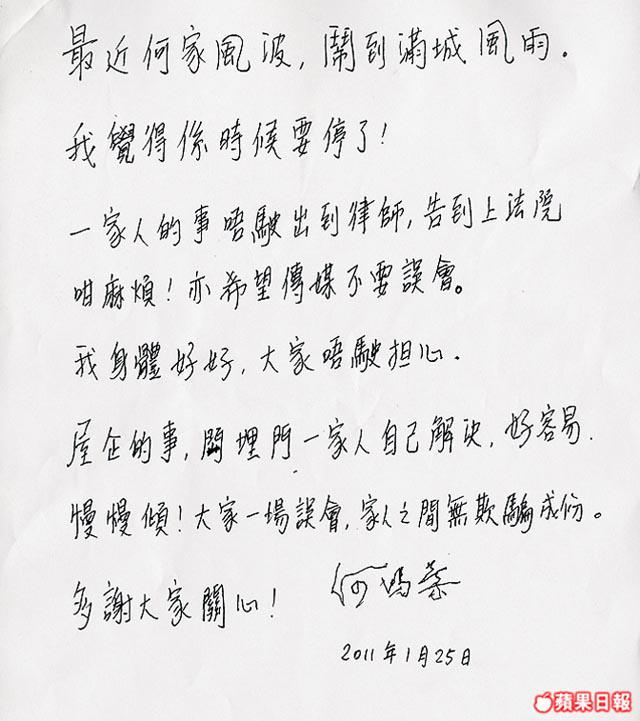 最近何家風波，鬧到滿城風雨．
我覺得係時候要停了！
一家人的事唔駛出到律師，告到上法院
咁麻煩！亦希望傳媒不要誤會。
我身體好好，大家唔駛担心．
屋企的事，関埋門一家人自己解決，好容易．
慢慢傾！大家一場誤會，家人之間無欺騙成份。
多謝大家關心！
何鴻燊
2011年1月25日
蘋果日報